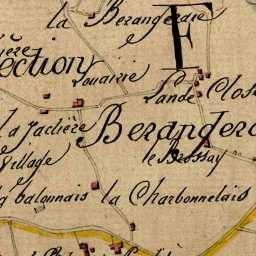 la Berangerdie
F
ection
Louairie
Lande Clos
la Jaclière
Beranger
Village
le Brossay
balonnais
la Charbonnelais